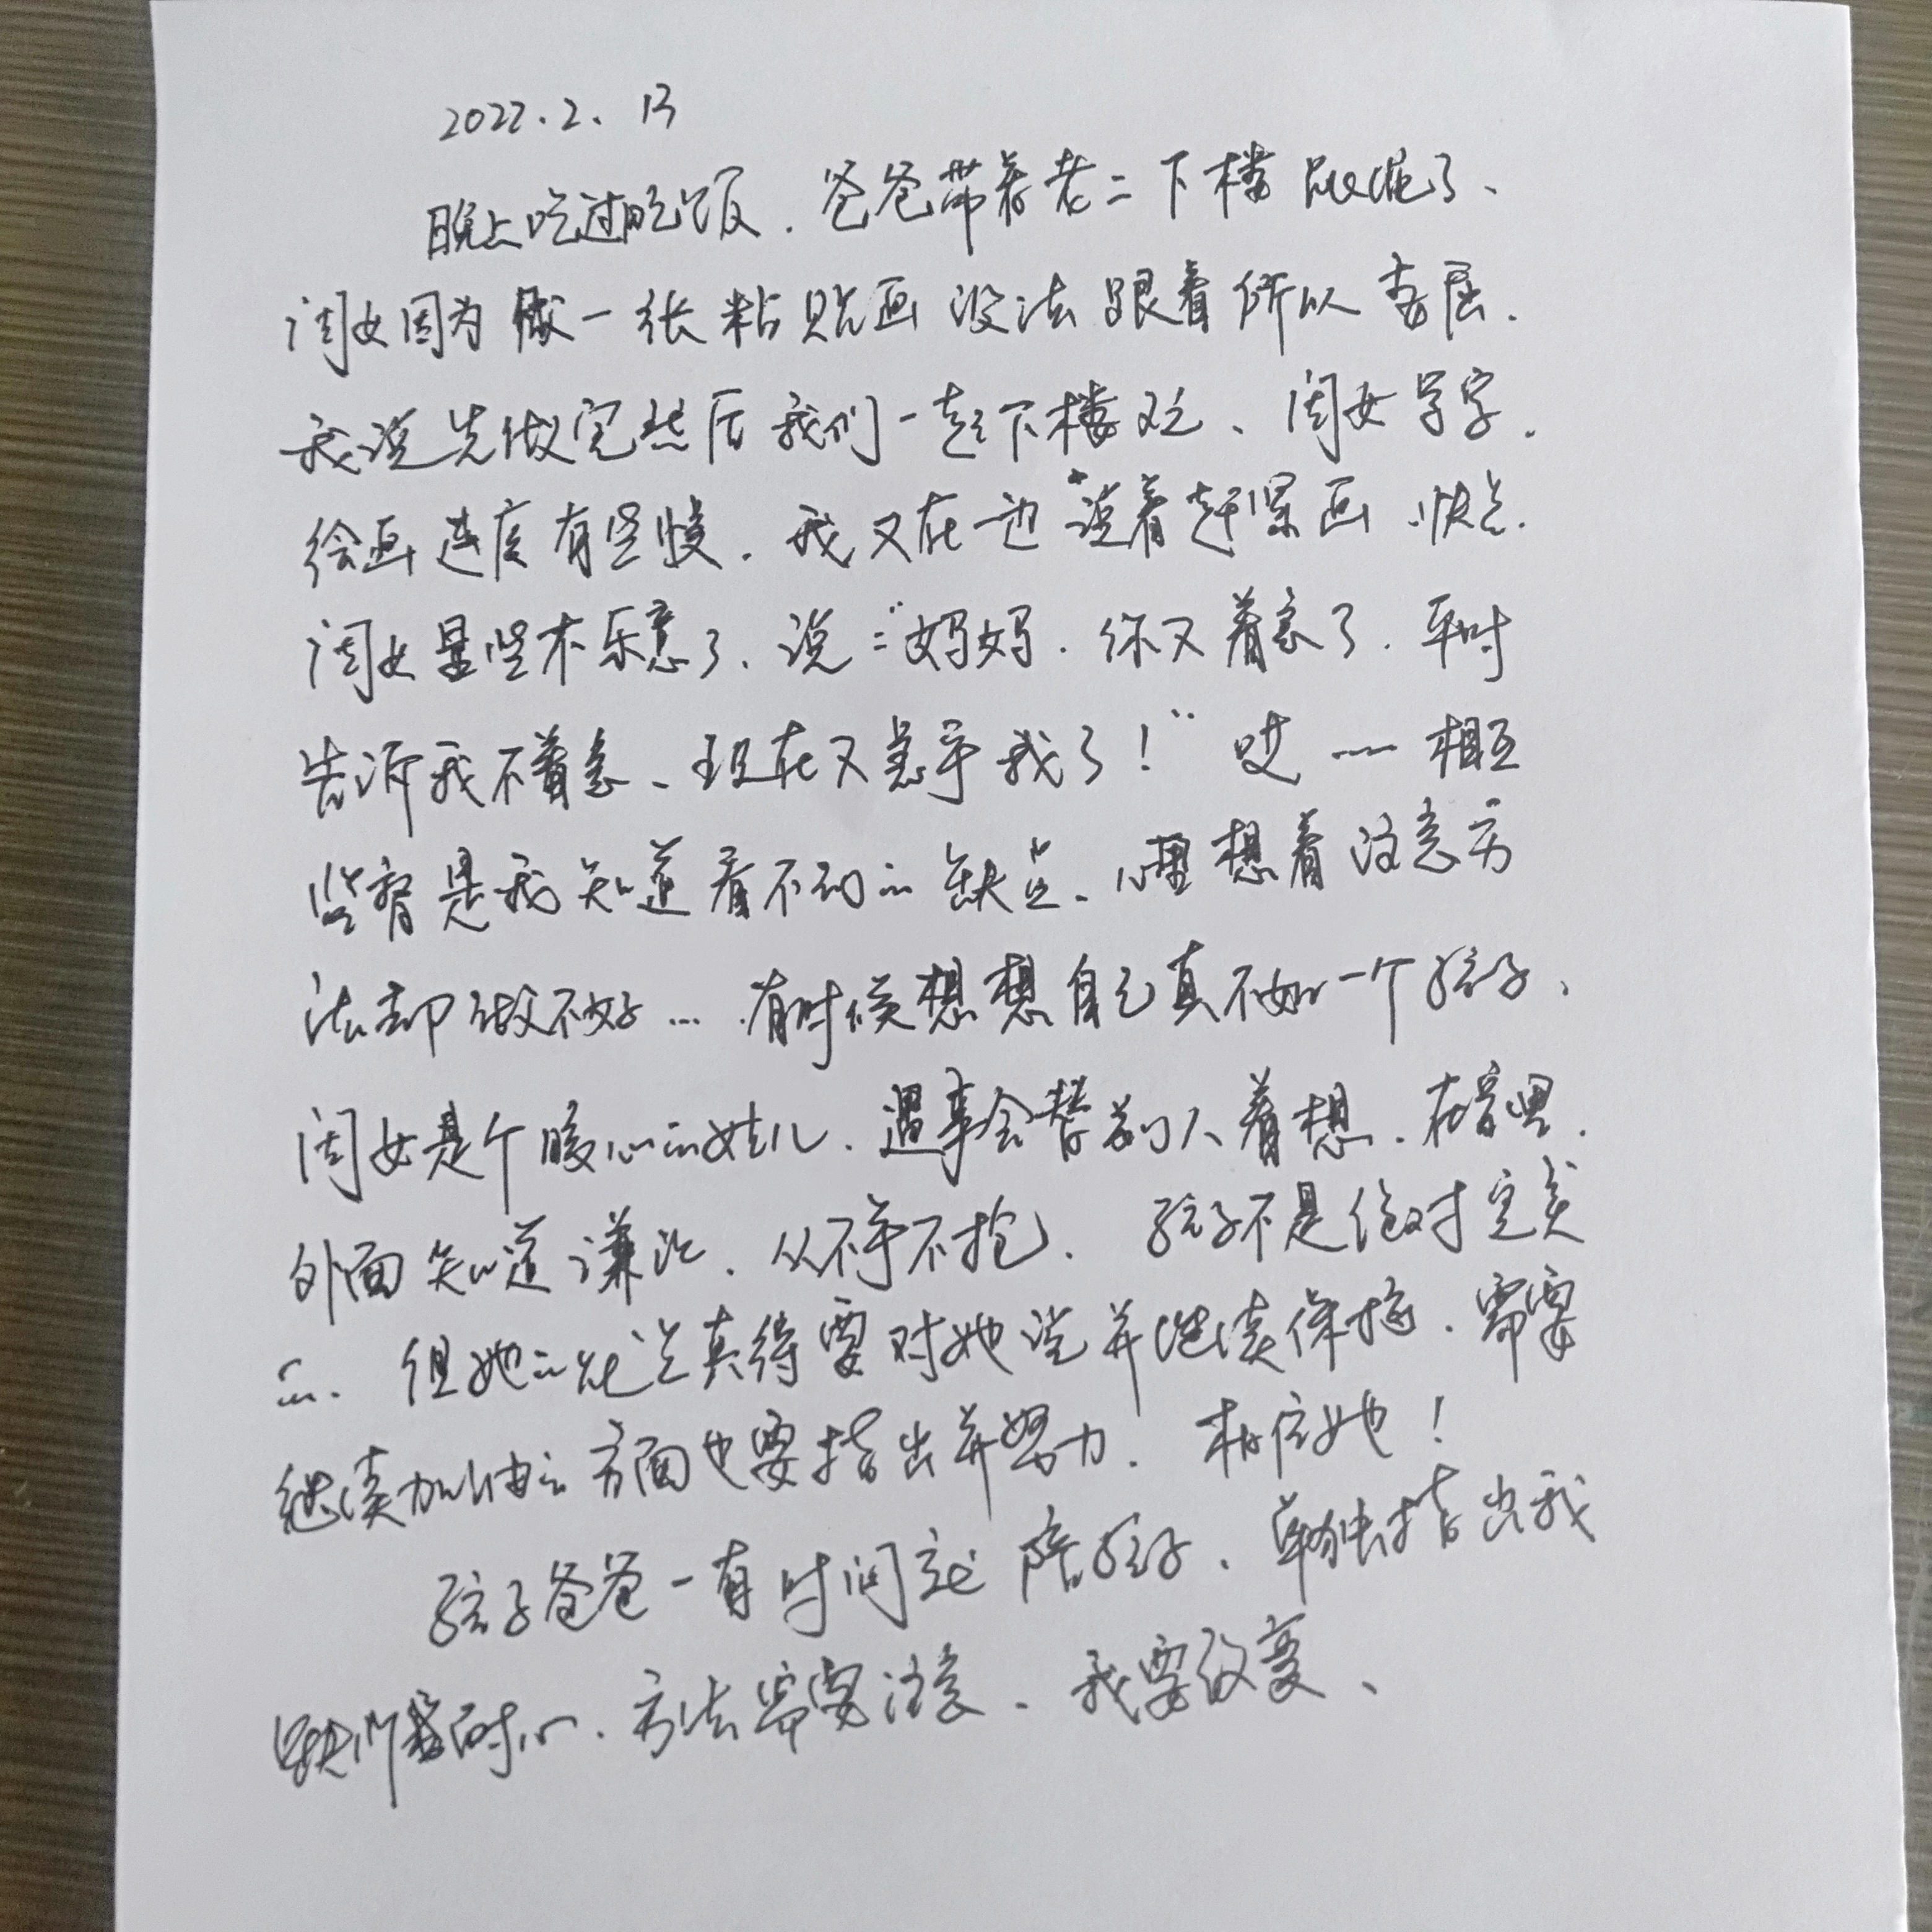 2022.2.13
晚上吃过晚饭.爸爸带着老二下楼玩了、
闺女因为做一张粘贴画没法跟着所以委屈.
我说先做完然后我们一起下楼玩、闺女写字.
绘画速度有些慢.我又在一边说着赶紧画快点.
闺女显些不乐意了、说:“妈妈.你又着急了.平时
告诉我不着急、现在又急乎我了!”哎……相互
监督是我知道看不到的缺点、心理想着注意方
法却做不好….有时候想想自己真不如一个孩子、
闺女是个暖心的娃儿.遇事会替别人着想.在家里.
外面知道谦让.从不争不抢.孩子不是绝对完美
的.但她的优点真得要对她说并继续保持.需要
继续加油的方面也要指出并努力.相信她!
孩子爸爸一有时间就陪孩子、单独指出我
缺耐心.方法需要注意、我要改变、